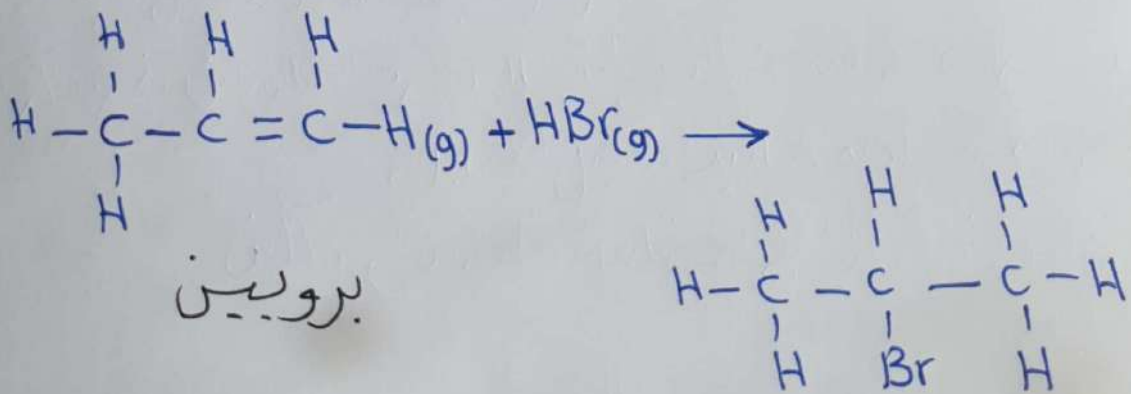 H H H
H – C – C = C – H(g) + HBr(g) ⟶
H
بروبين
H H H
H – C – C – C – H
H Br H